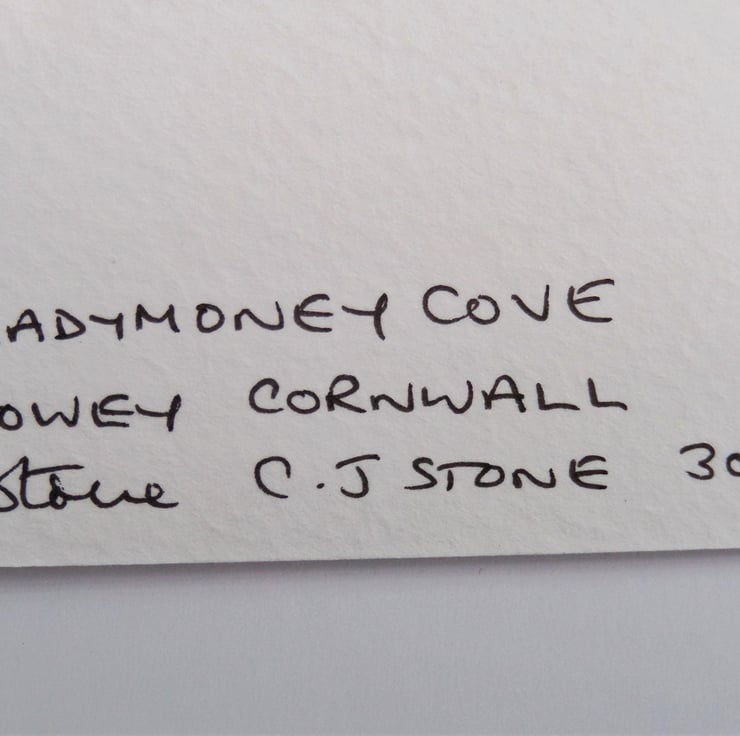 ADYMONEY COVE
OWEY CORNWALL
Stone C.J STONE 30